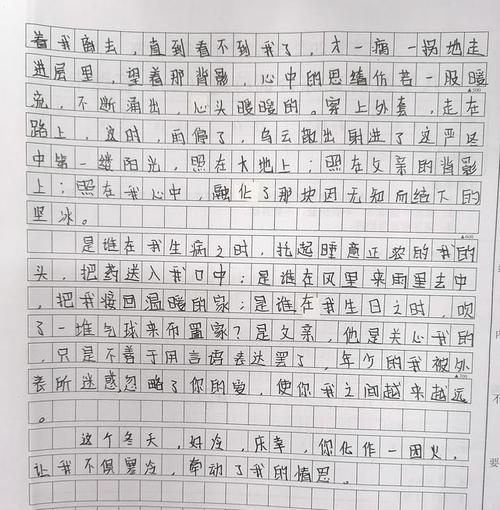 着我离去，直到看不到我了，才一瘸一拐地走
进屋里，望着那背影，心中的思绪仿若一股暖
流，不断涌出，心头暖暖的。穿上外套，走在
路上，这时，雨停了，乌云散出射进了这严冬
中第一缕阳光，照在大地上；照在父亲的背影
上；照在我心中，融化了那块因无知而结下的
坚冰。
是谁在我生病之时，托起睡意正浓的我的
头，把药送入我口中；是谁在风里来雨里去中
，把我接回温暖的家；是谁在我生日之时，吹
了一堆气球来布置家？是父亲，他是关心我的
，只是不善于用言语表达罢了，年少的我被外
表所迷惑忽略了你的爱，使你我之间越来越远
。
这个冬天，好冷，庆幸，你化作一团火，
让我不惧寒冷，牵动了我的情思。